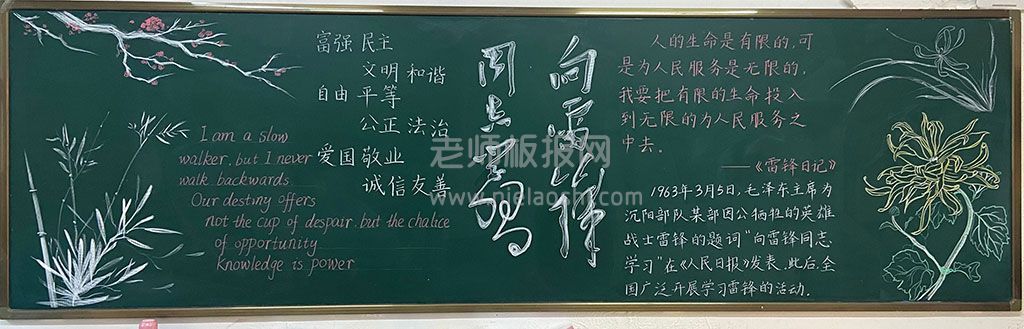 富强 民主
文明 和谐
自由 平等
公正 法治
爱国 敬业
诚信 友善
I am a slow
walker, but I never
walk backwards
Our destiny offers
not the cup of despair, but the chalice
of opportunity
Knowledge is power
向雷锋
同志学习
人的生命是有限的,可
是为人民服务是无限的,
我要把有限的生命投入
到无限的为人民服务之
中去。
——《雷锋日记》
1963年3月5日,毛泽东主席为
沉阳部队某部因公牺牲的英雄
战士雷锋的题词"向雷锋同志
学习"在《人民日报》发表,此后,全
国广泛开展学习雷锋的活动.
老师板报网
www.nielaoshi.com